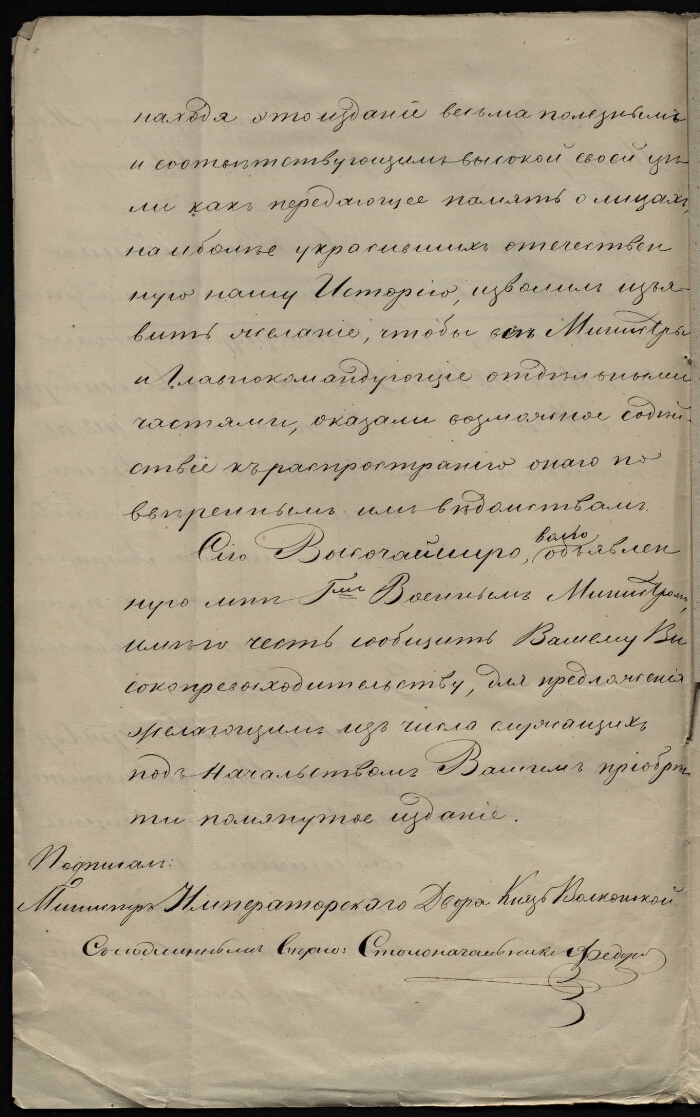 находя это изданіе весьма полезнымъ
и соотвѣтствующимъ высокой своей цѣ-
ли какъ передающее память о лицахъ,
наиболѣе украсившихъ отечествен
ную нашу Исторію, изволилъ изъя-
вить желаніе, чтобы всѣ Министры
и Главнокомандующіе отдѣльными
частями, оказали возможное содѣй-
ствіе къ распространію онаго по
ввѣреннымъ имъ вѣдомствамъ.
Сію Высочайшую волю, объявлен
ную мнѣ Гмъ Военнымъ Министромъ,
имѣю честь сообщить Вашему Вы
сокопревосходительству, для предложенія
желающимъ изъ числа служащихъ
подъ Начальствомъ Вашимъ пріобрѣ-
ти помянутое изданіе.
Подписалъ:
Министръ Императорскаго Двора Князь Волконской.
Съ подлиннымъ вѣрно: Столоначальникъ